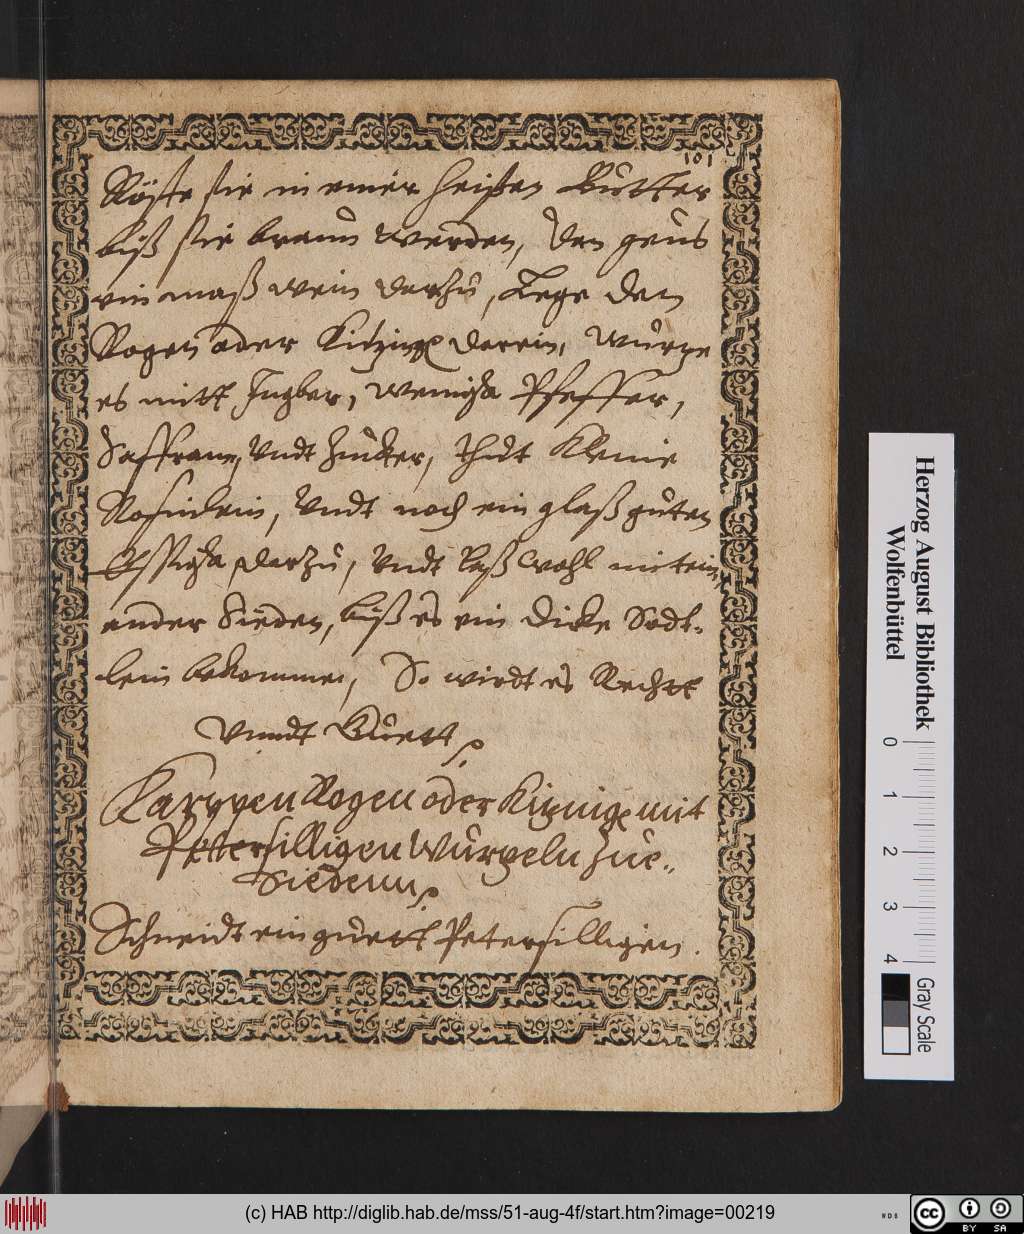 101
Röste sie in einer heissen Butter
biß sie braun werden, Den geus
ein maß wein darzu, Lege den
Rogen oder darein, würze
es mitt Ingber, Pfeffer,
Saffrann, Vndt Zucker, thut Kleine
Rosinlein, Vndt noch ein glaß guten
Essigs darzu, Vndt laß wohl mitein,
ander Sieden, biß es ein dicke Södt-
lein bekommen, So wirdt es Recht
Vnndt Guett
Karpven Rogen oder mit
Petersilligen Würzeln Zue„
Siedenn
Schneidt ein guett Petersilligen.
Herzog August Bibliothek
Wolfenbüttel
0 1 2 3 4
Gray Scale
(c) HAB http://diglib.hab.de/mss/51-aug-4f/start.htm?image=00219
WDB
cc BY SA